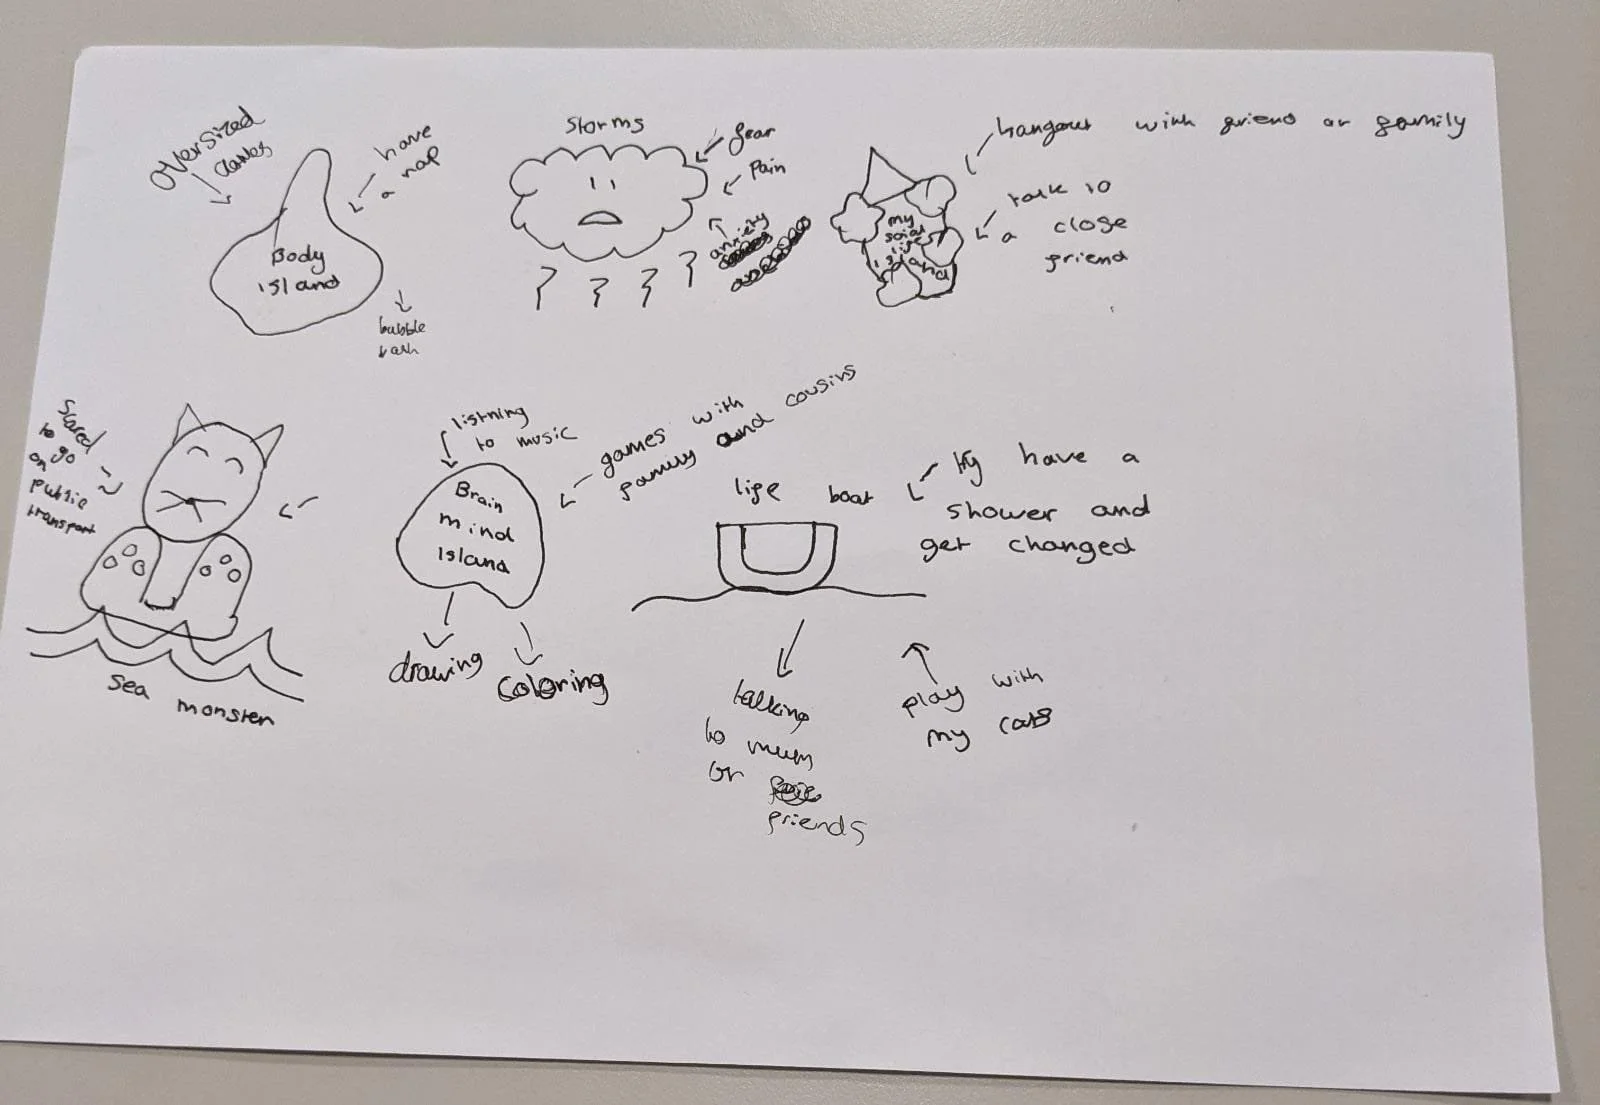 oversized
clothes
have
a nap
Body
island
bubble
bath
Storms
fear
Pain
anxiety
my
social
life
island
hangout with friend or family
talk to
a close
friend
Scared
to go
on
public
transport
Sea monster
listning
to music
games with
family and cousins
Brain
mind
island
drawing
coloring
life boat
try have a
shower and
get changed
talking
to mum
or
friends
play with
my cats